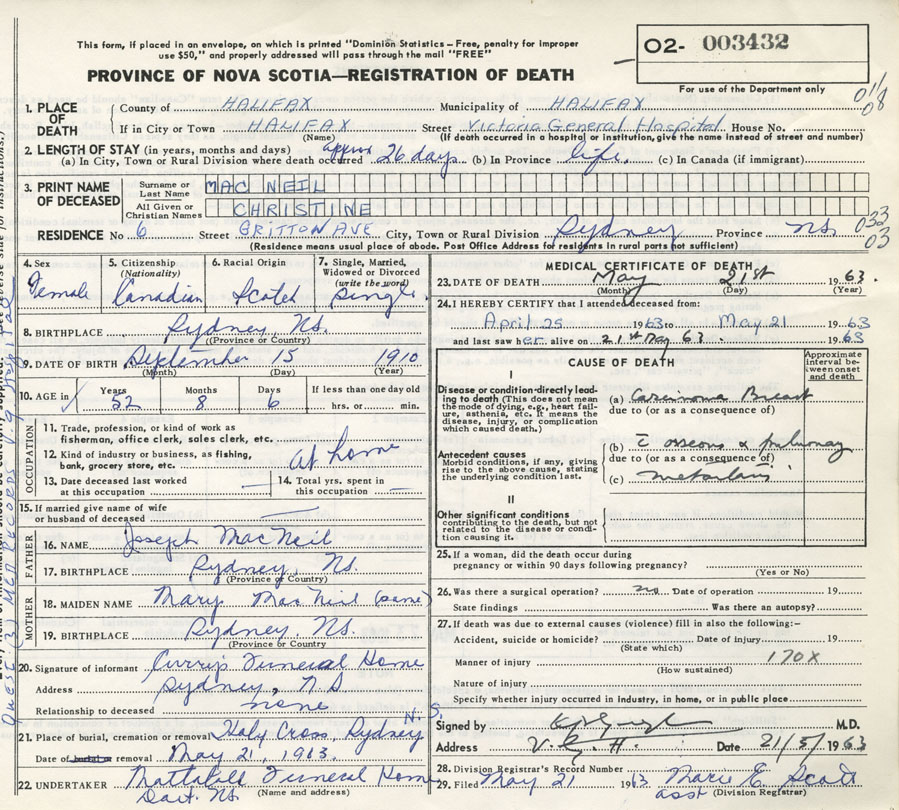 This form, if placed in an envelope, on which is printed "Dominion Statistics – Free, penalty for improper
use $50," and properly addressed will pass through the mail "FREE"
O2- 003432
For use of the Department only
PROVINCE OF NOVA SCOTIA—REGISTRATION OF DEATH
1. PLACE OF DEATH County of HALIFAX Municipality of HALIFAX
If in City or Town HALIFAX Street Victoria General Hospital House No.
(Name) (If death occurred in a hospital or institution, give the name instead of street and number)
2. LENGTH OF STAY (in years, months and days)
(a) In City, Town or Rural Division where death occurred approx 26 days (b) In Province life. (c) In Canada (if immigrant)
3. PRINT NAME OF DECEASED Surname or Last Name MAC NEIL
All Given or Christian Names CHRISTINE
RESIDENCE No 6 Street BRITTON AVE City, Town or Rural Division Sydney Province NS
(Residence means usual place of abode. Post Office Address for residents in rural parts not sufficient)
033
03
4. Sex Female
5. Citizenship (Nationality) Canadian
6. Racial Origin Scotch
7. Single, Married, Widowed or Divorced (write the word) Single
8. BIRTHPLACE Sydney, NS.
(Province or Country)
9. DATE OF BIRTH September 15 1910
(Month) (Day) (Year)
10. AGE in Years 52 Months 8 Days 6 If less than one day old hrs. or min.
OCCUPATION
11. Trade, profession, or kind of work as
fisherman, office clerk, sales clerk, etc.
12. Kind of industry or business, as fishing,
bank, grocery store, etc. at home
13. Date deceased last worked
at this occupation —
14. Total yrs. spent in
this occupation —
15. If married give name of wife
or husband of deceased —
FATHER
16. NAME Joseph MacNeil
17. BIRTHPLACE Sydney, NS.
(Province or Country)
MOTHER
18. MAIDEN NAME Mary MacNeil (same)
19. BIRTHPLACE Sydney, NS.
(Province or Country)
20. Signature of informant Curry's Funeral Home
Address Sydney, N.S
Relationship to deceased none
21. Place of burial, cremation or removal Holy Cross, Sydney N.S.
Date of burial or removal May 21, 1963.
22. UNDERTAKER Mattatall Funeral Home
Dart. NS (Name and address)
MEDICAL CERTIFICATE OF DEATH
23. DATE OF DEATH May 21st 1963
(Month) (Day) (Year)
24. I HEREBY CERTIFY that I attended deceased from:
April 25 1963 to May 21 1963
and last saw her alive on 21st May 63. 1963
CAUSE OF DEATH
Approximate interval between onset and death
I
Disease or condition directly leading to death (This does not mean the mode of dying, e.g., heart failure, asthenia, etc. It means the disease, injury, or complication which caused death.)
(a) Carcinoma Breast
due to (or as a consequence of)
Antecedent causes
Morbid conditions, if any, giving rise to the above cause, stating the underlying condition last.
(b) c̄ osseous & pulmonary
due to (or as a consequence of)
(c) metastasis
II
Other significant conditions
contributing to the death, but not related to the disease or condition causing it.
25. If a woman, did the death occur during
pregnancy or within 90 days following pregnancy?
(Yes or No)
26. Was there a surgical operation? no Date of operation 19
State findings Was there an autopsy?
27. If death was due to external causes (violence) fill in also the following:–
Accident, suicide or homicide? Date of injury 19
(State which)
Manner of injury 170X
(How sustained)
Nature of injury
Specify whether injury occurred in industry, in home, or in public place
Signed by M.D.
Address V.G.H. Date 21/5/1963
28. Division Registrar's Record Number
29. Filed May 21 1963 Marie E. Scott
asst (Division Registrar)